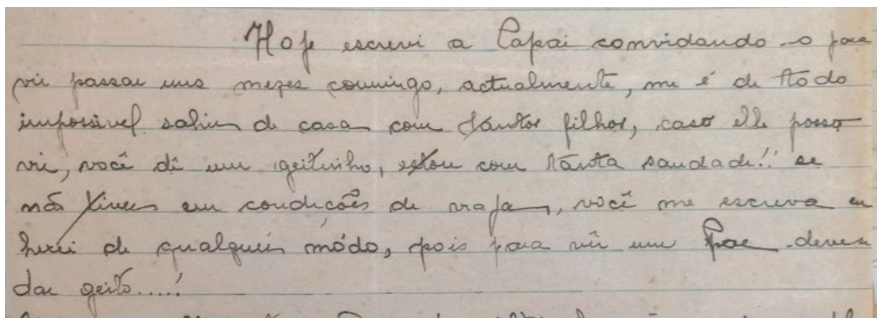 Hoje escrevi a Papai convidando-o para
vir passar uns mezes commingo, actualmente, me é de tôdo
impossivel sahir de casa com tantos filhos, caso elle possa
vir, você dê um geitinho, estou com tanta saudade!! se
não tiver em condições de viajar, você me escreva eu
herei de qualquer módo, pois para vêr um Pae devese
dar geito.....!